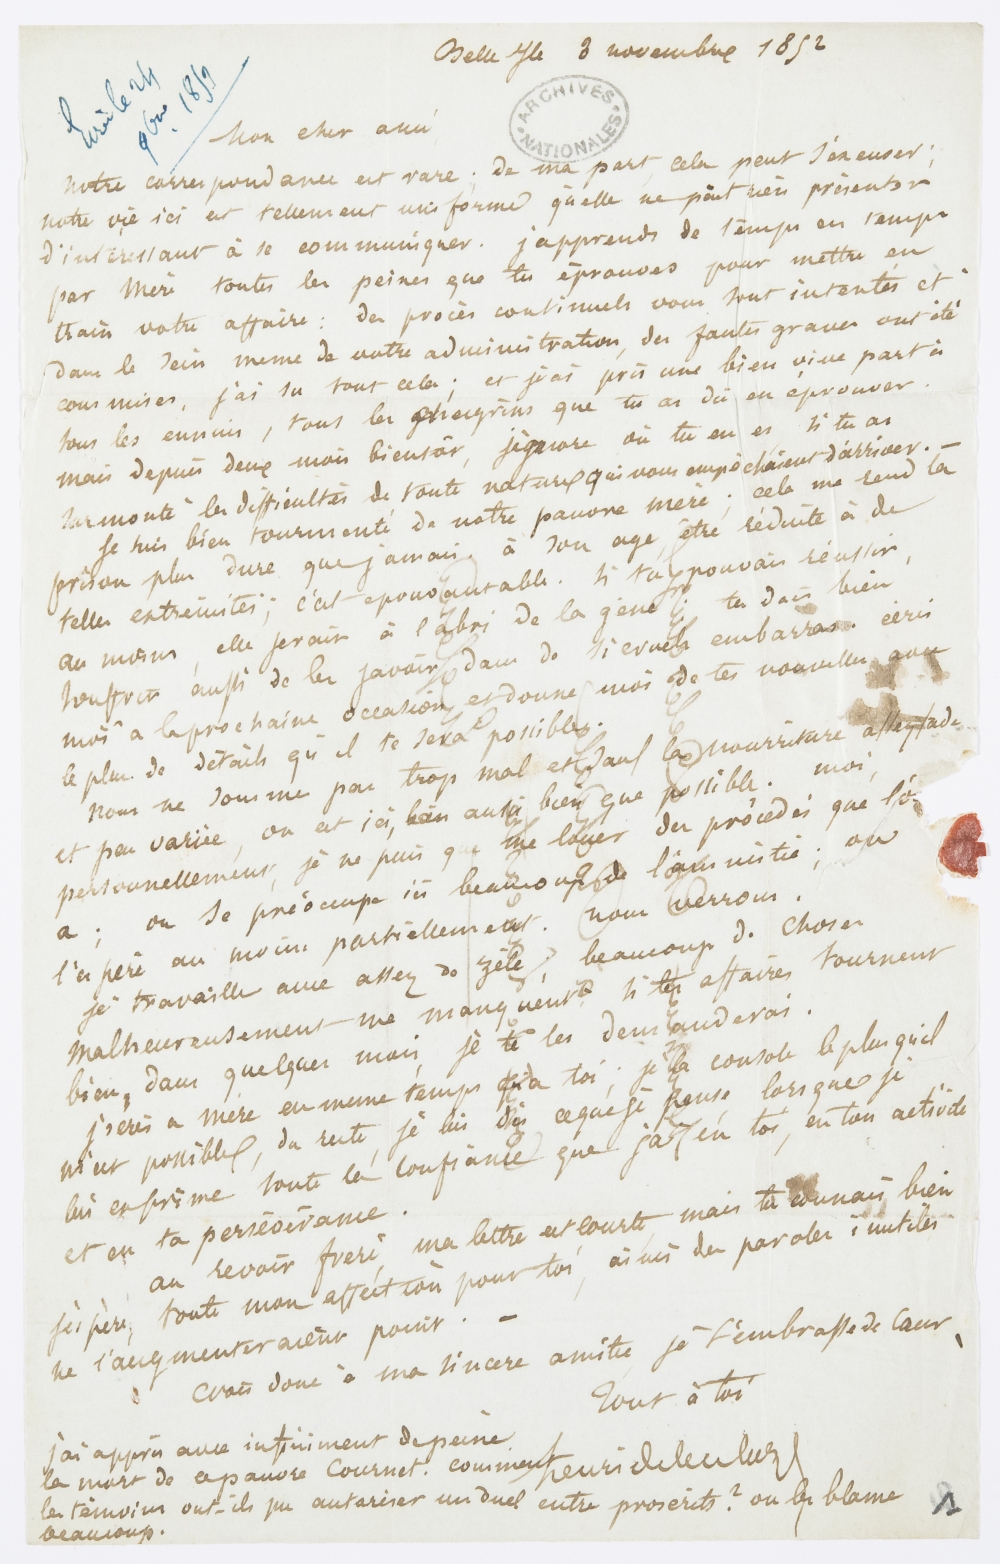 Belle Ysle 3 novembre 1852
Ecrit le 24
9bre 1852
ARCHIVES NATIONALES
Mon cher ami
notre correspondance est rare ; de ma part, cela peut s'excuser ;
notre vie ici est tellement uniforme qu'elle ne peut rien présenter
d'interessant à se communiquer. j'apprends de temps en temps
par Mère toutes les peines que tu éprouves pour mettre en
train votre affaire : des procès continuels vous sont intentés et
dans le sein meme de votre administration, des fautes graves ont été
commises. j'ai su tout cela ; et j'ai pris une bien vive part à
tous les ennuis, tous les chagrins que tu as dû en éprouver.
mais depuis deux mois bientôt, j'ignore où tu en es si tu as
surmonté les difficultés de toute nature qui vous empêchaient d'arriver. —
Je suis bien tourmenté de notre pauvre mère ; cela me rend la
prison plus dure que jamais. à son age, être réduite à de
telles extremités ; c'est epouvantable. si tu pouvais réussir,
au moins, elle serait à l'abri de la gêne ; tu dois bien
souffrir aussi de les savoir dans de si cruels embarras. écris
moi a la prochaine occasion et donne moi de tes nouvelles avec
le plus de détails qu'il te sera possible.
nous ne sommes pas trop mal et sauf la nourriture assez fade
et peu variée, on est ici, aussi bien que possible. moi,
personnellement, je ne puis que me louer des procédés que l'on
a ; on se préoccupe ici beaucoup de l'amnistie ; on
l'espère au moins partiellement. nous verrons.
je travaille avec assez de zèle ; beaucoup de choses
malheureusement me manquent. si tes affaires tournent
bien, dans quelques mois, je te les demanderai.
j'ecris a mère en meme temps qu'a toi ; je la console le plus qu'il
m'est possible, du reste, je lui dis ce que je pense lorsque je
lui exprime toute la confiance que j'ai en toi, en ton activité
et en ta persévérance.
au revoir frère, ma lettre est courte mais tu connais bien
j'espère, toute mon affection pour toi, ainsi des paroles inutiles
ne l'augmenteraient point. —
Crois donc à ma sincere amitié, je t'embrasse de Cœur,
Tout à toi
henri delescluze
j'ai appris avec infiniment de peine
la mort de ce pauvre Cournet. comment
les témoins ont-ils pu autoriser un duel entre proscrits ? on les blame
beaucoup.
1